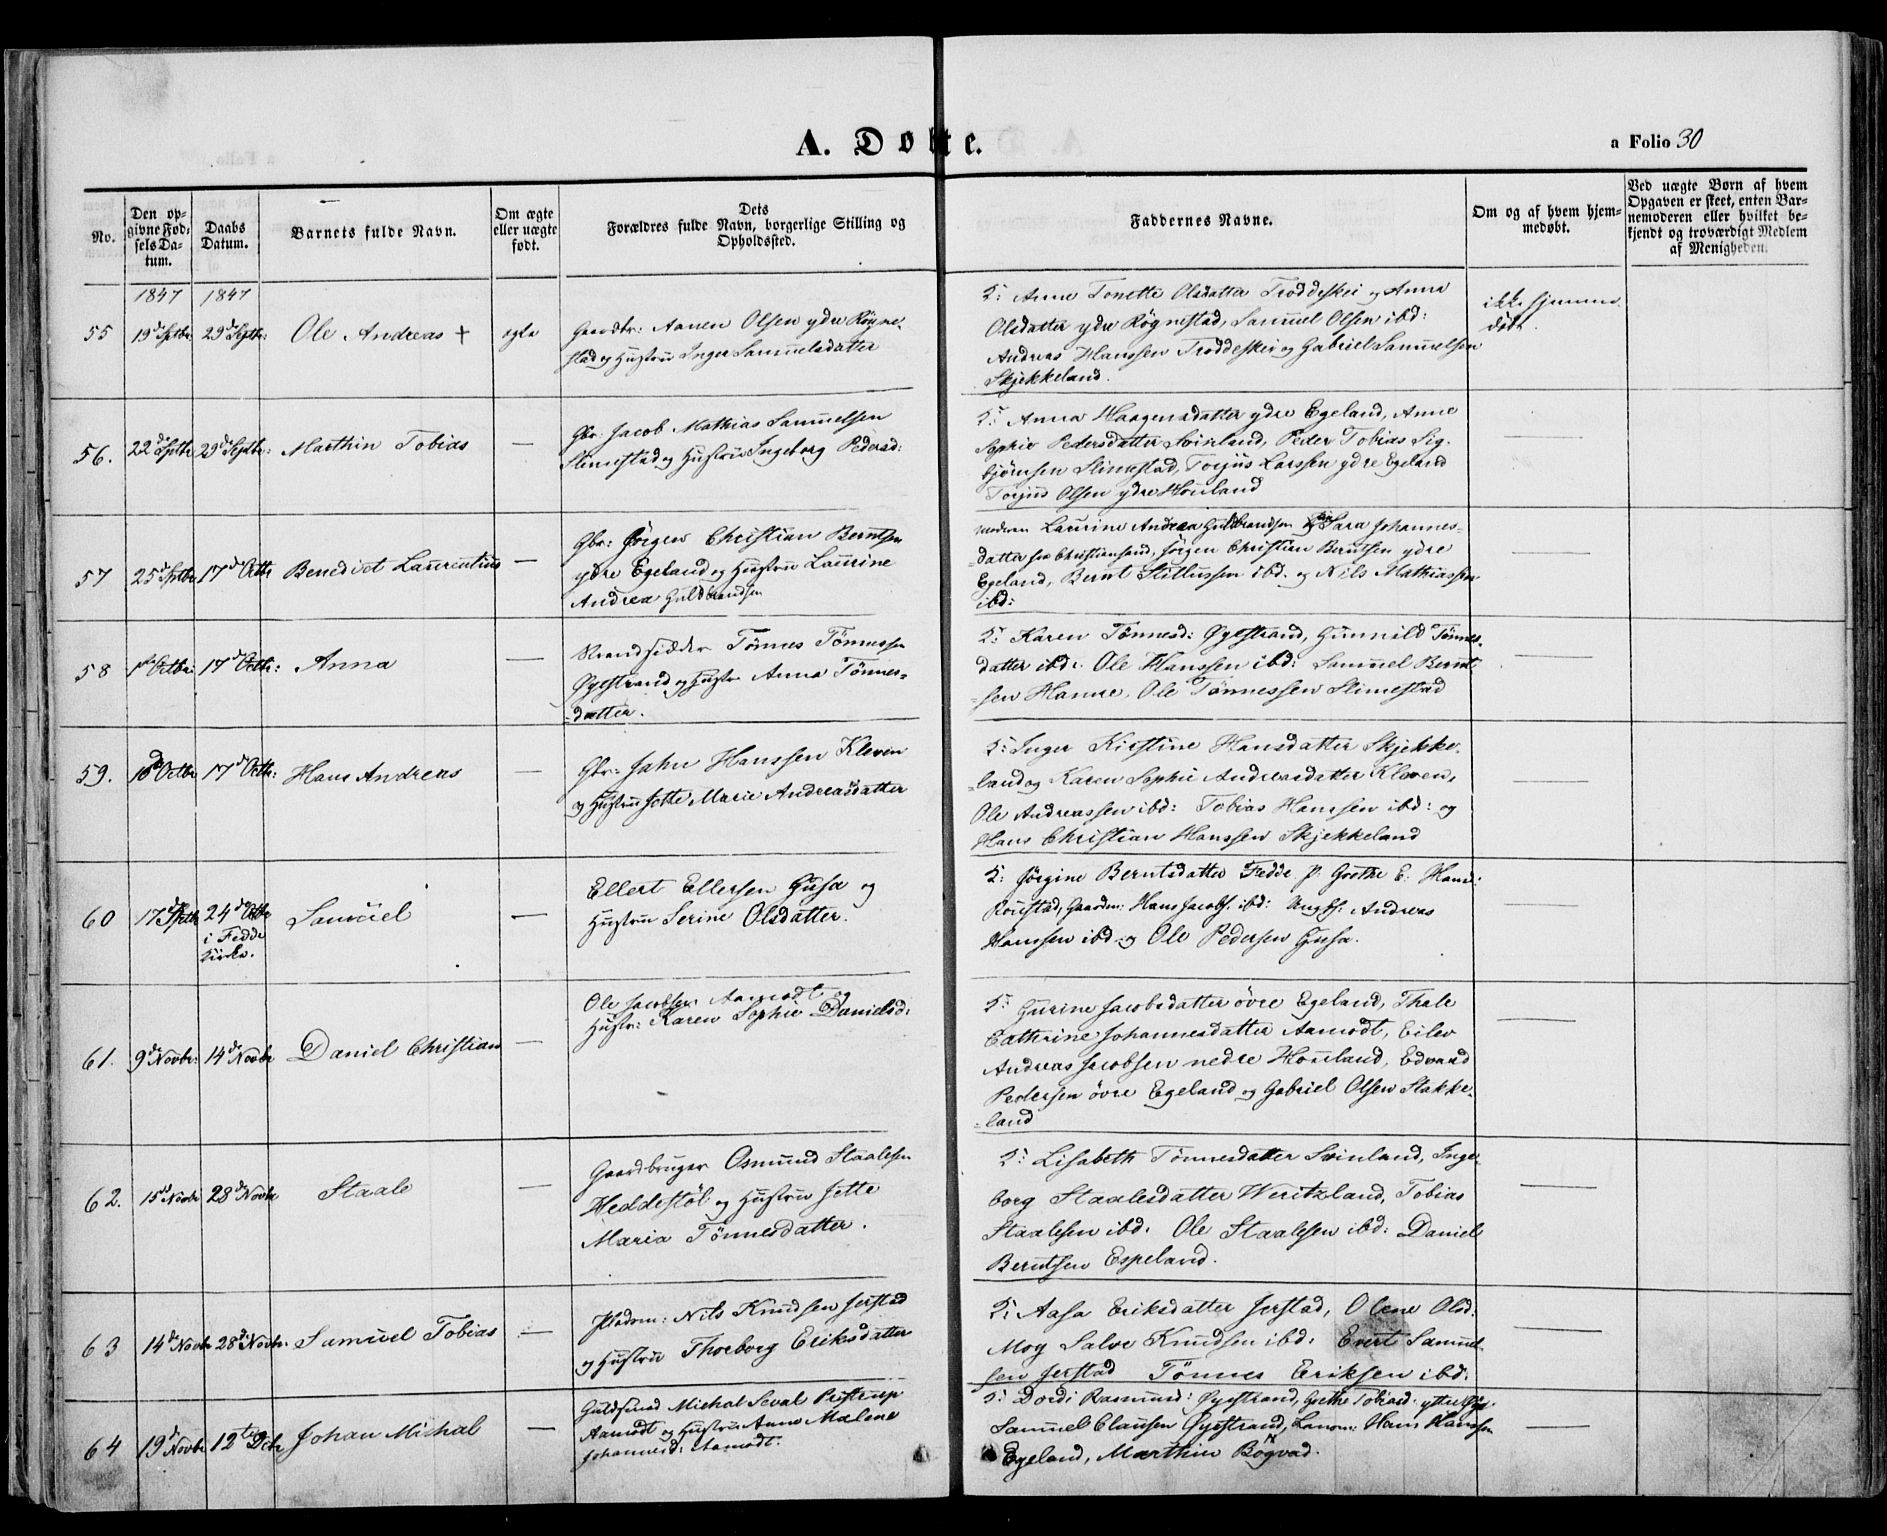 A. Døbte.
a Folio 30
No.
Den opgivne Fødsels Datum.
Daabs Datum.
Barnets fulde Navn.
Om ægte eller uægte født.
Dets Forældres fulde Navn, borgerlige Stilling og Opholdssted.
Faddernes Navne.
Om og af hvem hjemmedøbt.
Ved uægte Børn af hvem Opgaven er skeet, enten Barnemoderen eller hvilket bekjendt og troværdigt Medlem af Menigheden.
1847 1847
55 19d Septbr 29d Septbr: Ole Andreas + ægte
Gaardbr: Aanen Olsen ydre Røgne-
stad og Hustrue Inger Samuelsdatter
K: Anne Tonette Olsdatter Troddeskei og Anna
Olsdatter ydre Røgnestad, Samuel Olsen ibd:
Andreas Hanssen Troddeskei og Gabriel Samuelsen
Skjekkeland.
ikke hjemme
døbt.
56. 22d Septbr 29d Septbr: Marthin Tobias —
Gbr: Jacob Mathias Samuelsen
Slimestad og Hustrue Ingeborg Pedersd:
K: Anna Haagensdatter ydre Egeland, Anne
Sophie Pedersdatter Svinland, Peder Tobias Sig-
bjørnsen Slimestad, Torjus Larssen ydre Egeland
Torjus Olsen ydre Houland
—
57 25d Septbr 17d Octbr Benedict Laurentius —
Gbr: Jørgen Christian Berntsen
ydre Egeland og Hustrue Laurine
Andrea Guldbrandsen
Moderen Laurine Andrea Guldbrandsen Sara Johannes-
datter fra Christiansand, Jørgen Christian Berntsen ydre
Egeland, Bernt Stillussen ibd. og Nils Mathiassen
ibd:
—
58 1ste Octbr 17d Octbr: Anna —
Strandsidder Tønnes Tønnessen
Øyestrand og Hustr Anna Tønnes-
datter.
K: Karen Tønnesd: Øyestrand, Gunnild Tønnes-
datter ibd: Ole Hanssen ibd: Samuel Bernt-
sen Hamre, Ole Tønnessen Slimestad
—
59. 10d Octbr 17d Octbr: Hans Andreas —
Gbr: Jahn Hanssen Kleven
og Hustrue Jotte Marie Andreasdatter
K: Inger Kirstine Hansdatter Skjekke-
land og Karen Sophie Andreasdatter Kleven,
Ole Andreassen ibd: Tobias Hanssen ibd: og
Hans Christian Hanssen Skjekkeland
—
60 17d Septbr 24d Octbr
i Fedde
Kirke.
Samuel —
Ellert Ellersen Gusa og
Hustrue Serine Olsdatter.
K: Jørgine Berntsdatter Fedde P: Grethe E: Hansd:
Roustad, Gaardm: Hans Jacobs. ibd: Ungk: Andreas
Hanssen ibd og Ole Pedersen Gusa.
—
61. 9d Novbr: 14d Novbr Daniel Christian —
Ole Jacobsen Aamodt og
Hustr: Karen Sophie Danielsd:
K: Gurine Jacobsdatter øvre Egeland, Thale
Cathrine Johannesdatter Aamodt, Eilev
Andreas Jacobsen nedre Houland, Edvard
Pedersen øvre Egeland og Gabriel Olsen Stakke-
land
—
62. 15d Novbr 28d Novbr Staale —
Gaardbruger Osmund Staalesen
Heddestøl og Hustrue Jette
Maria Tønnesdatter.
K: Lisabeth Tønnesdatter Svinland, Inge-
borg Staalesdatter Weritzland, Tobias
Staalesen ibd: Ole Staalesen ibd: Daniel
Berntsen Espeland.
—
63 14d Novbr 28d Novbr: Samuel Tobias —
Pladsm: Nils Knudsen Jerstad
og Hustrue Thorborg Eriksdatter
K: Aasa Eriksdatter Jerstad, Olene Olsd:
Moy Salve Knudsen ibd: Evert Samuel-
sen Jerstad Tønnes Eriksen ibd:
—
64 19d Novbr 12te Dcbr Johan Michal —
Guldsmed Michal Seval Pristrup
Aamodt og Hustrue Anne Malene
Johannesd: Aamodt.
K: Dordi Rasmusd: Øyestrand, Grethe Tobiasd: ytter
Samuel Clausen Øyestrand, Lensm: Hans Hanssen
Egeland, Marthin Bøgvad.
—